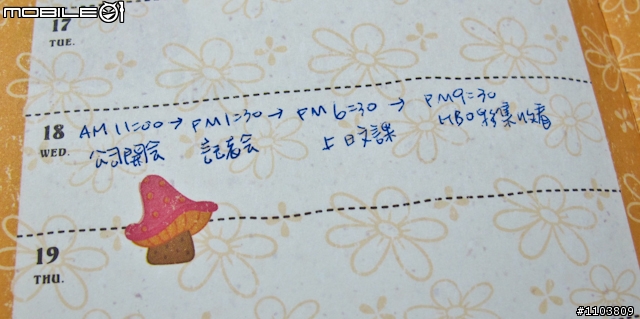 mobile01
17
TUE.
18
WED.
AM 11:00 → PM 1:30 → PM 6:30 → PM 9:30
公司開會 記者會 上日文課 HBO影集收看
19
THU.
#1103809